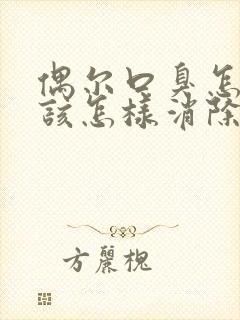 偶尔口臭怎
該怎樣消除
方麗槐